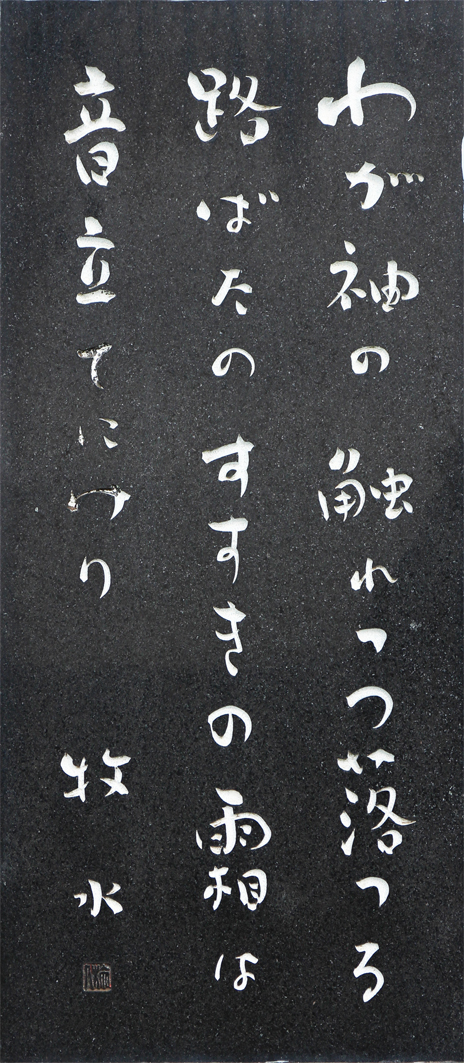 わが袖の触れつつ落つる
路ばたのすすきの霜は
音立てにけり
牧水